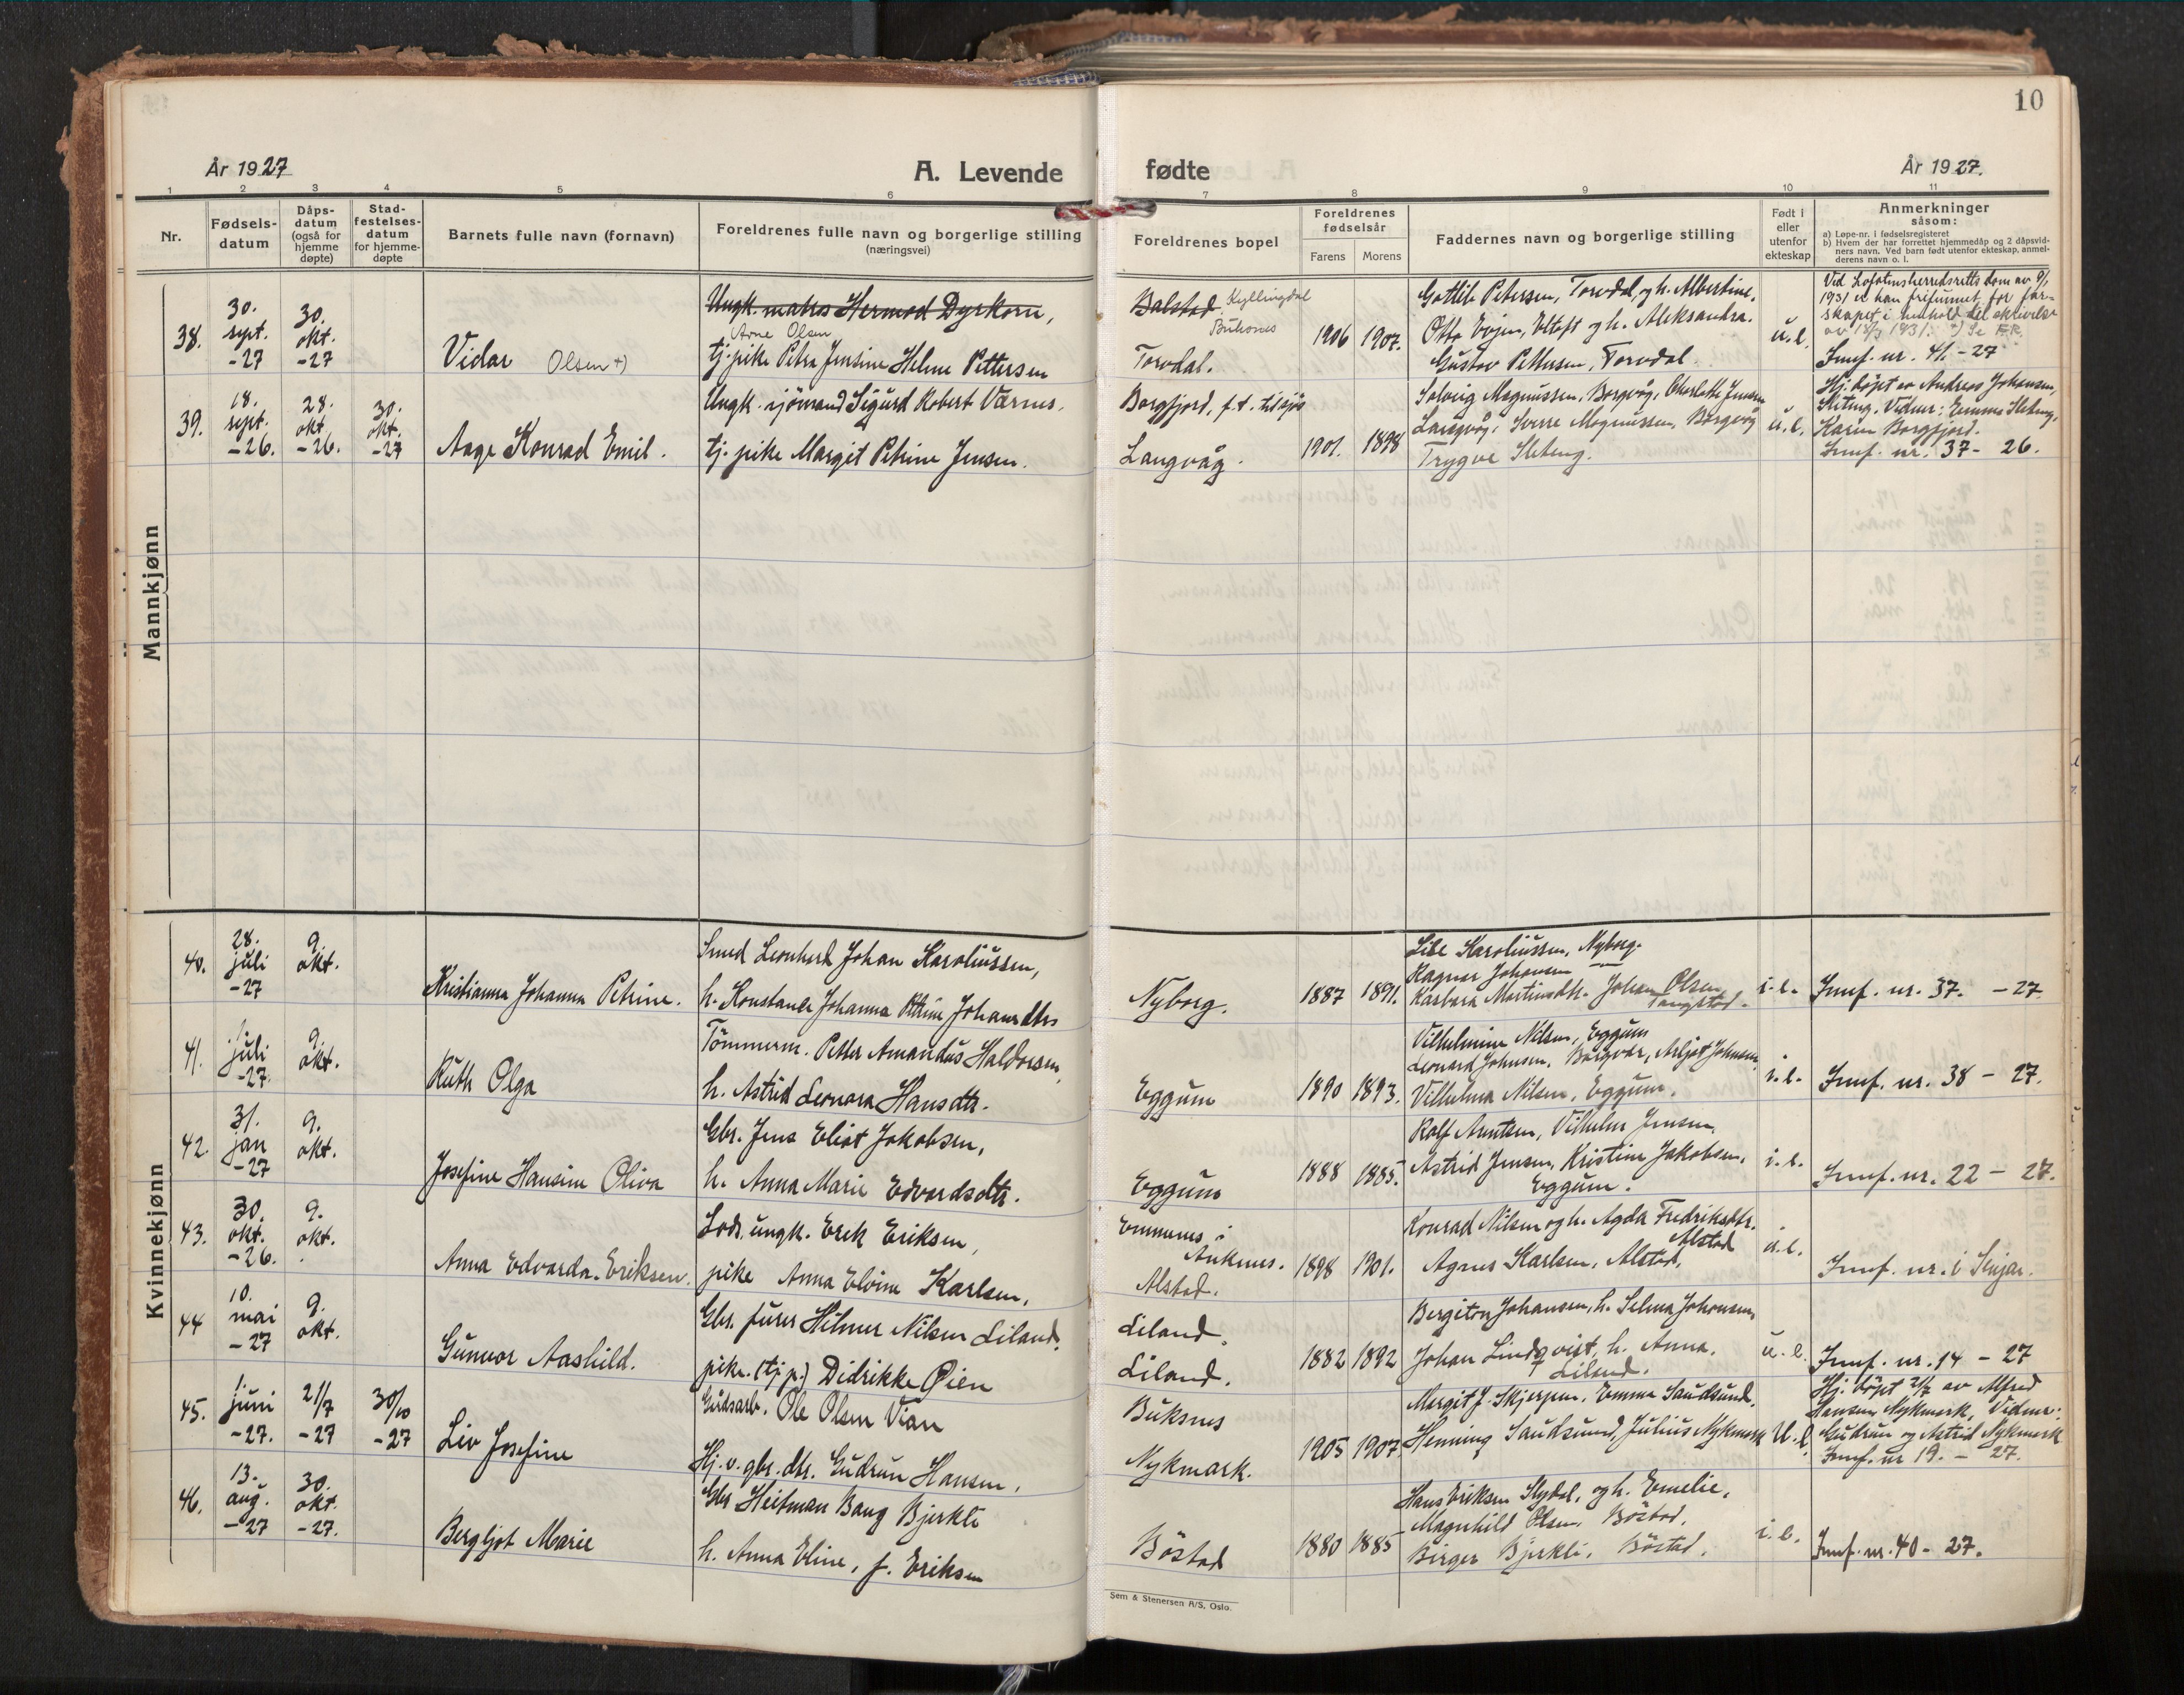 10
År 1927
A. Levende fødte
År 1927.
1 2 3 4 5 6 7 8 9 10 11
Nr.
Fødsels-
datum
Dåps-
datum
(også for
hjemme
døpte)
Stad-
festelses-
datum
for hjemme-
døpte
Barnets fulle navn (fornavn)
Foreldrenes fulle navn og borgerlige stilling
(næringsvei)
Foreldrenes bopel
Foreldrenes
fødselsår
Farens Morens
Faddernes navn og borgerlige stilling
Født i
eller
utenfor
ekteskap
Anmerkninger
såsom:
a) Løpe-nr. i fødselsregisteret
b) Hvem der har forrettet hjemmedåp og 2 dåpsvid-
ners navn. Ved barn født utenfor ekteskap, anmel-
derens navn o. l.
Mannkjønn
38.
30.
sept.
-27
30.
okt.
-27
Vidar Olsen +)
Ungk. matros Hermod Dyrkorn,
Arne Olsen
tj. pike Petra Jensine Helene Pettersen
Balstad Kyllingdal
Buksnes
Torvdal.
1906 1907.
Gottlib Petersen, Torvdal, og h. Albertine.
Otto Evjen, Eltoft og h. Aleksandra.
Gustav Pettersen, Torvdal.
u. e.
Ved Lofotens herredsretts dom av 9/1
1931 er han frifunnet for far-
skapet i henhold til skrivelse
av 13/3 1931. +) Se FR.
Innf. nr. 41. - 27
39.
18.
sept.
-26.
28.
okt
-26.
30.
okt.
-27
Aage Konrad Emil.
Ungk. sjömand Sigurd Robert Værnes.
tj. pike Margit Petrine Jensen.
Borgfjord, f.t. tilsjøs
Langvåg.
1901. 1898
Solveig Magnussen, Borgvåg, Charlotte Jensen
Langvåg, Sverre Magnussen, Borgvåg
Trygve Steteng.
u. e.
Hj. döpt av Andreas Johansen,
Steteng. Vidner: Emma Steteng,
Karen Borgfjord.
Innf. nr. 37 - 26.
Kvinnekjønn
40.
28.
juli
-27
9.
okt.
Kristianna Johanna Petrine.
Smed Leonhard Johan Karoliussen,
h. Konstanse Johanna Petrine Johansdtr
Nyborg.
1887 1891.
Lise Karoliussen, Nyborg.
Ragnar Johansen
Barbara Martinsdtr. Johan Olsen
Tangstad.
i. e.
Innf. nr. 37. - 27.
41.
1.
juli
-27.
9.
okt.
Ruth Olga
Tömmerm. Petter Amandus Haldorsen,
h. Astrid Leonora Hansdtr.
Eggum
1890 1893.
Vilhelmine Nilsen, Eggum
Leonard Johnsen, Borgvær, Arljot Johnsen,
Vilhelma Nilsen, Eggum.
i. e.
Innf. nr. 38 - 27.
42.
31.
jan
-27
9.
okt.
Josefine Hansine Oliva
Gbr. Jens Eliot Jakobsen,
h. Anna Marie Edvardsdtr.
Eggum
1888 1885.
Rolf Arntsen, Vilhelm Jensen,
Astrid Jensen, Kristine Jakobsen,
Eggum.
i. e.
Innf. nr. 22 - 27.
43.
30.
okt.
-26.
9.
okt.
Anna Edvarda. Eriksen.
Lods, ungk. Erik Eriksen,
pike Anna Elvine Karlsen.
Emmenes i
Ankenes.
Alstad.
1898 1901.
Konrad Nilsen og h. Agda Fredriksdtr.
Alstad
Agnes Karlsen, Alstad,
u. e.
Innf. nr. 6 Sinjar.
44
10.
mai
-27
9.
okt.
Gunvor Aashild.
Gbr. furer Hilmer Nilsen Liland.
pike. (tj. p.) Didrikke Øien
Liland.
Liland.
1882 1892
Bergiton Johansen, h. Selma Johansen,
Johan Lindqvist, h. Anna.
Liland.
u. e.
Innf. nr. 14 - 27
45.
1.
juni
-27.
21/7
-27
30/10
-27
Liv Josefine
Gårdsarb. Ole Olsen Vian
Hj. v. gbr. dtr. Gudrun Hansen,
Buksnes
Nykmark.
1905 1907.
Margit J. Skjerpen, Emma Sandsund.
Henning Sandsund, Julius Nykmark
U. e.
Hj. döpt 21/7 av Alfred
Hansen Nykmark. Vidner:
Gudrun og Astrid Nykmark
Innf. nr 19. - 27.
46.
13.
aug.
-27
30.
okt.
-27.
Bergljot Marie
Gbr Heitman Bang Bjerkli
h. Anna Eline, f. Eriksen
Böstad
1880 1885
Hans Eriksen Slydal, og h. Emelie,
Magnhild Olsen, Böstad,
Birger Bjerkli. Böstad.
i. e.
Innf. nr. 40 - 27.
Sem & Stenersen A/S, Oslo.